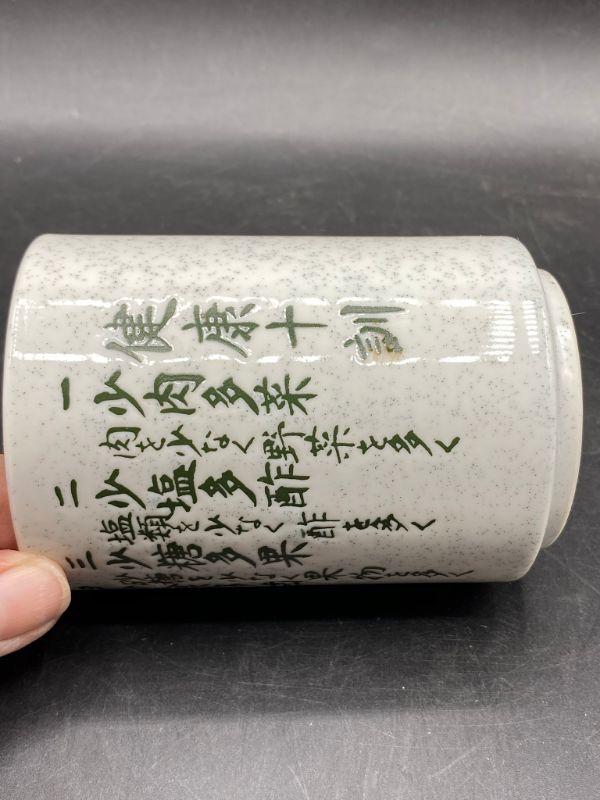 健康十訓
一 少肉多菜
肉を少なく野菜を多く
二 少塩多酢
塩類を少なく酢を多く
三 少糖多果
を少なく果物を多く